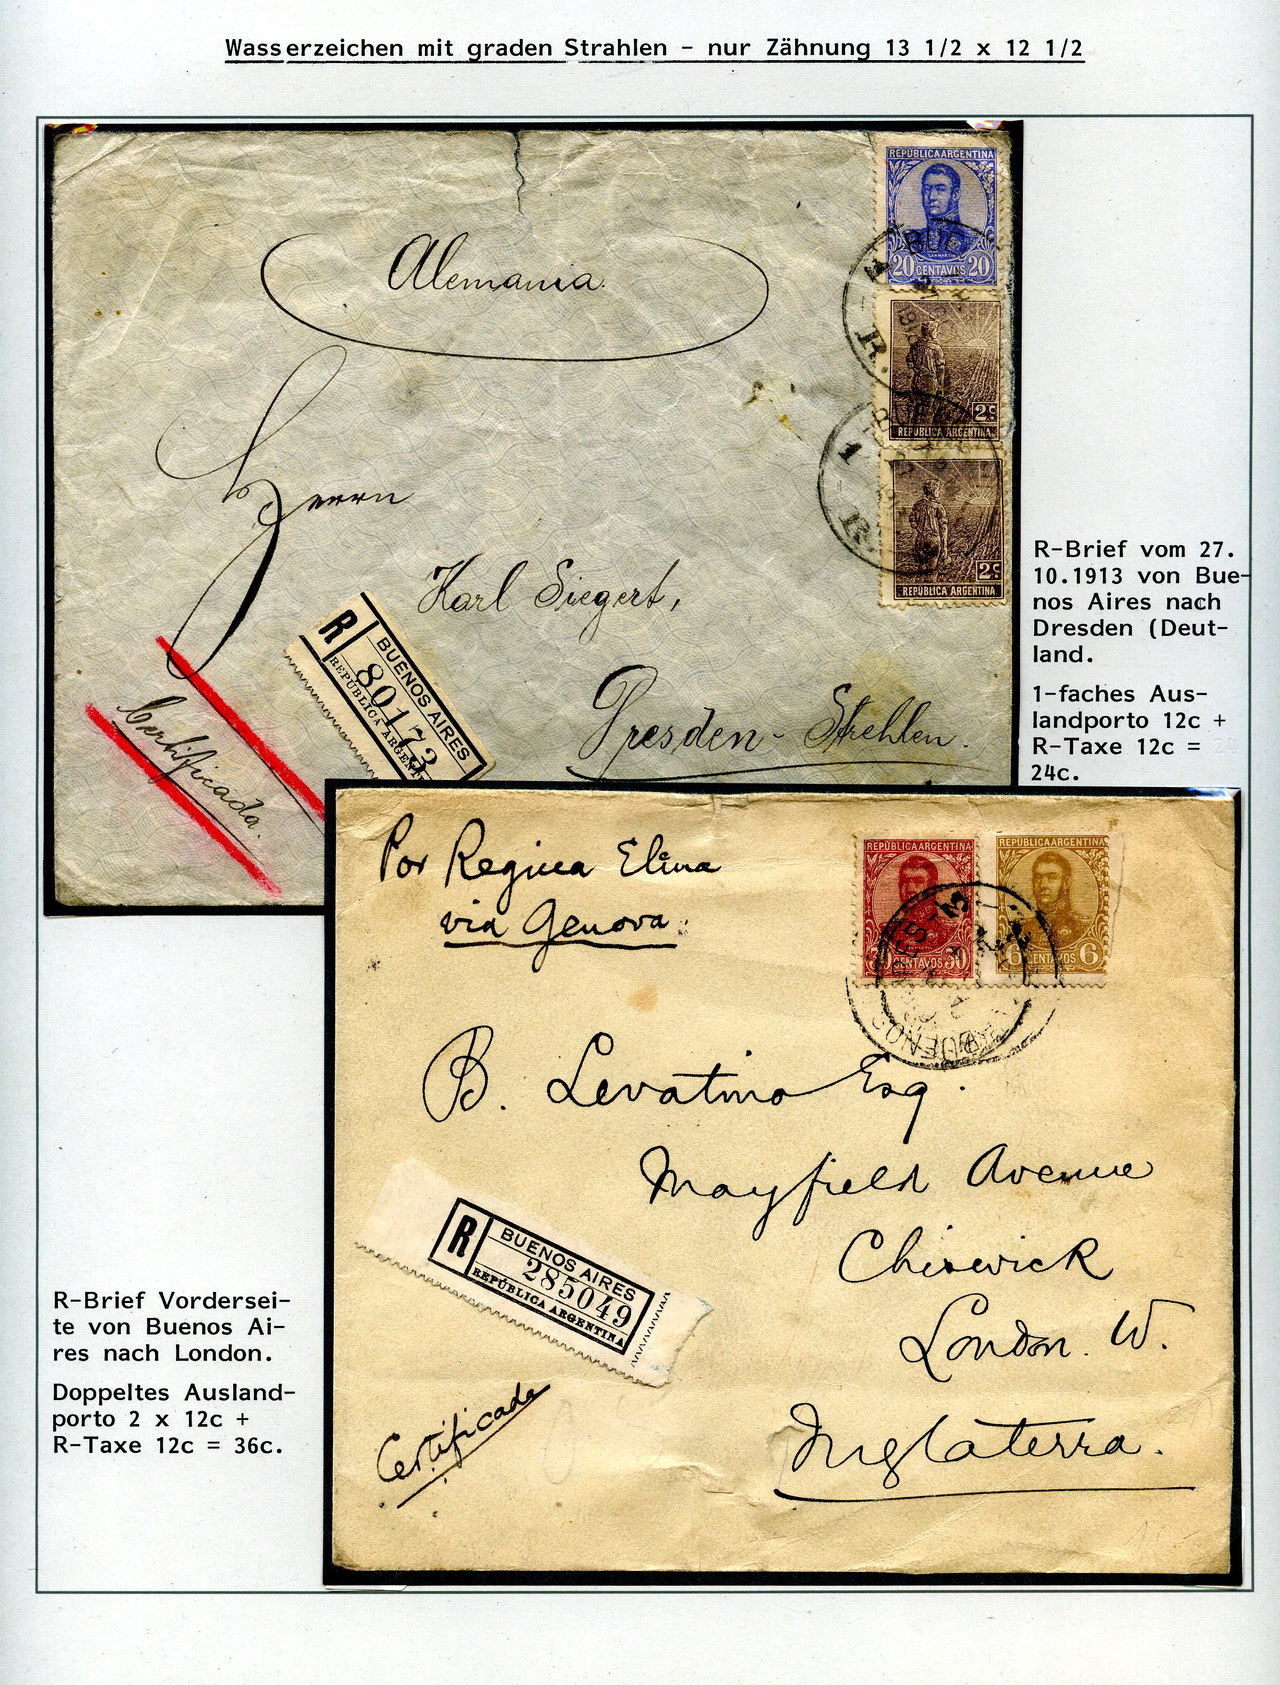 Wasserzeichen mit graden Strahlen - nur Zähnung 13 1/2 x 12 1/2
REPÚBLICA ARGENTINA
SAN MARTIN
20 CENTAVOS 20
2c
REPÚBLICA ARGENTINA
2c
REPÚBLICA ARGENTINA
Alemania.
Herrn
Karl Siegert,
Dresden - Strehlen.
R
BUENOS AIRES
80173
REPÚBLICA ARGENTI
Certificada.
R-Brief vom 27.
10.1913 von Bue-
nos Aires nach
Dresden (Deut-
land.
1-faches Aus-
landporto 12c +
R-Taxe 12c =
24c.
Por Regina Elena
via Genova.
REPÚBLICA ARGENTINA
30 CENTAVOS 30
REPÚBLICA ARGENTINA
6 CENTAVOS 6
BUENOS
B. Levatino Esq.
Mayfield Avenue
Chiswick
London. W.
Inglaterra.
R
BUENOS AIRES
285049
REPÚBLICA ARGENTINA
Certificada
R-Brief Vordersei-
te von Buenos Ai-
res nach London.
Doppeltes Ausland-
porto 2 x 12c +
R-Taxe 12c = 36c.